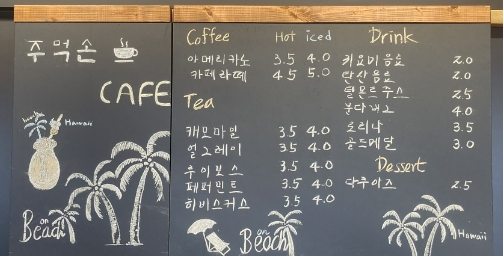 주먹손
CAFE
Hawaii
on
Beach
Coffee Hot iced
아메리카노 3.5 4.0
카페라떼 4.5 5.0
Tea
캐모마일 3.5 4.0
얼그레이 3.5 4.0
루이보스 3.5 4.0
페퍼민트 3.5 4.0
히비스커스 3.5 4.0
on
Beach
Drink
키요미음료 2.0
탄산음료 2.0
델몬트주스 2.5
분다버그 4.0
토리나 3.5
골드메달 3.0
Dessert
다쿠아즈 2.5
Hawaii